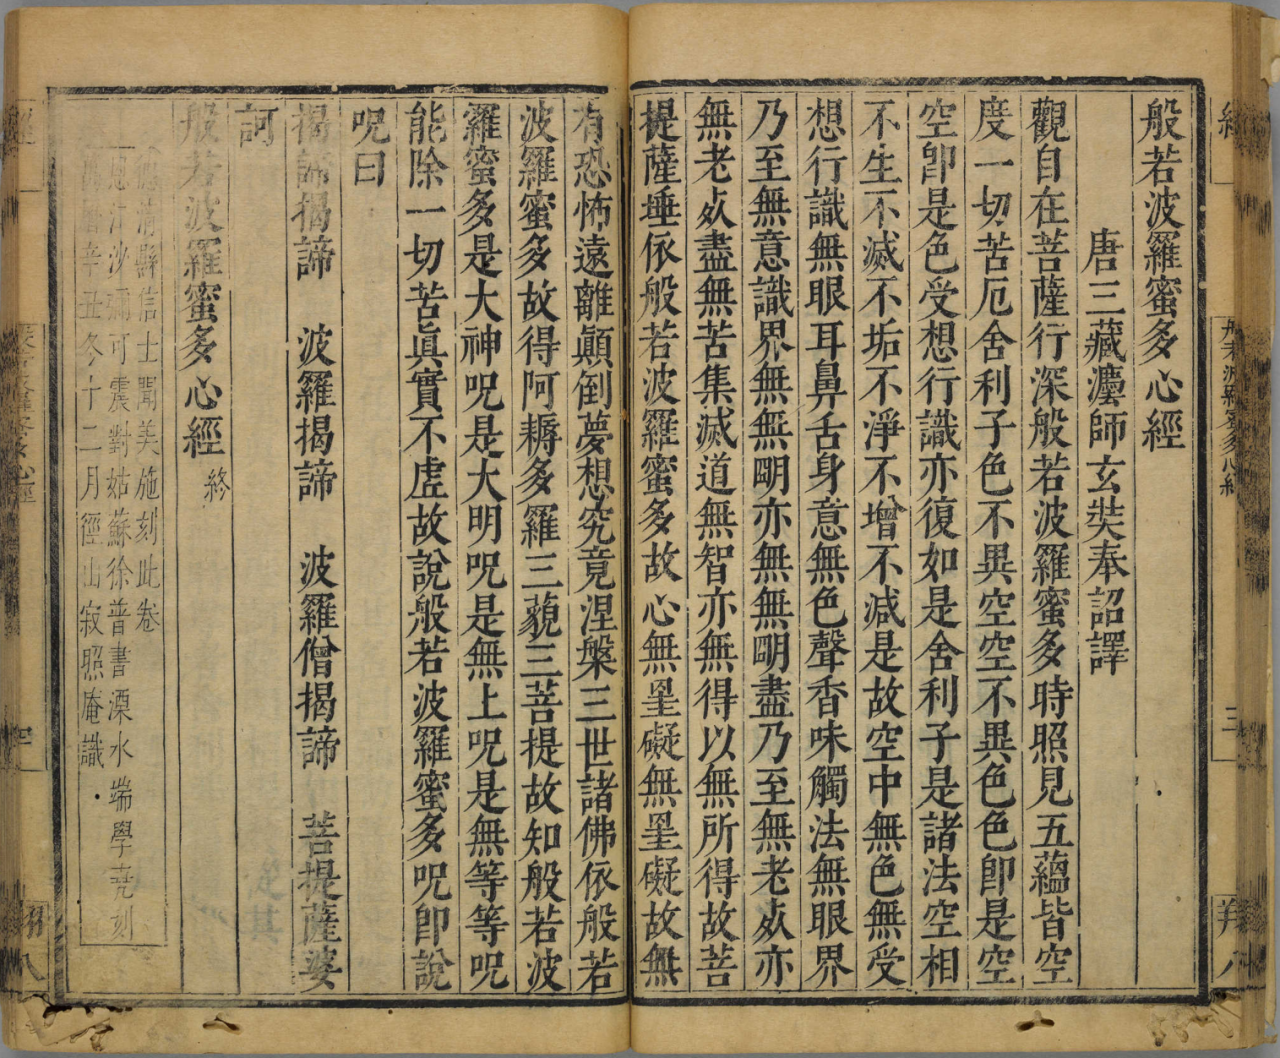 般若波羅蜜多心經
唐三藏灋師玄奘奉詔譯
觀自在菩薩行深般若波羅蜜多時照見五蘊皆空
度一切苦厄舍利子色不異空空不異色色卽是空
空卽是色受想行識亦復如是舍利子是諸法空相
不生不滅不垢不淨不增不減是故空中無色無受
想行識無眼耳鼻舌身意無色聲香味觸法無眼界
乃至無意識界無無明亦無無明盡乃至無老𣦸亦
無老𣦸盡無苦集滅道無智亦無得以無所得故菩
提薩埵依般若波羅蜜多故心無罣礙無罣礙故無
有恐怖遠離顚倒夢想究竟涅槃三世諸佛依般若
波羅蜜多故得阿耨多羅三藐三菩提故知般若波
羅蜜多是大神呪是大明呪是無上呪是無等等呪
能除一切苦眞實不虛故說般若波羅蜜多呪卽說
呪曰
揭諦揭諦 波羅揭諦 波羅僧揭諦 菩提薩婆
訶
般若波羅蜜多心經 終
德清縣信士聞美施刻此卷
沙彌可震對姑蘇徐普書溧水端學堯刻
萬曆辛丑冬十二月徑山寂照庵識